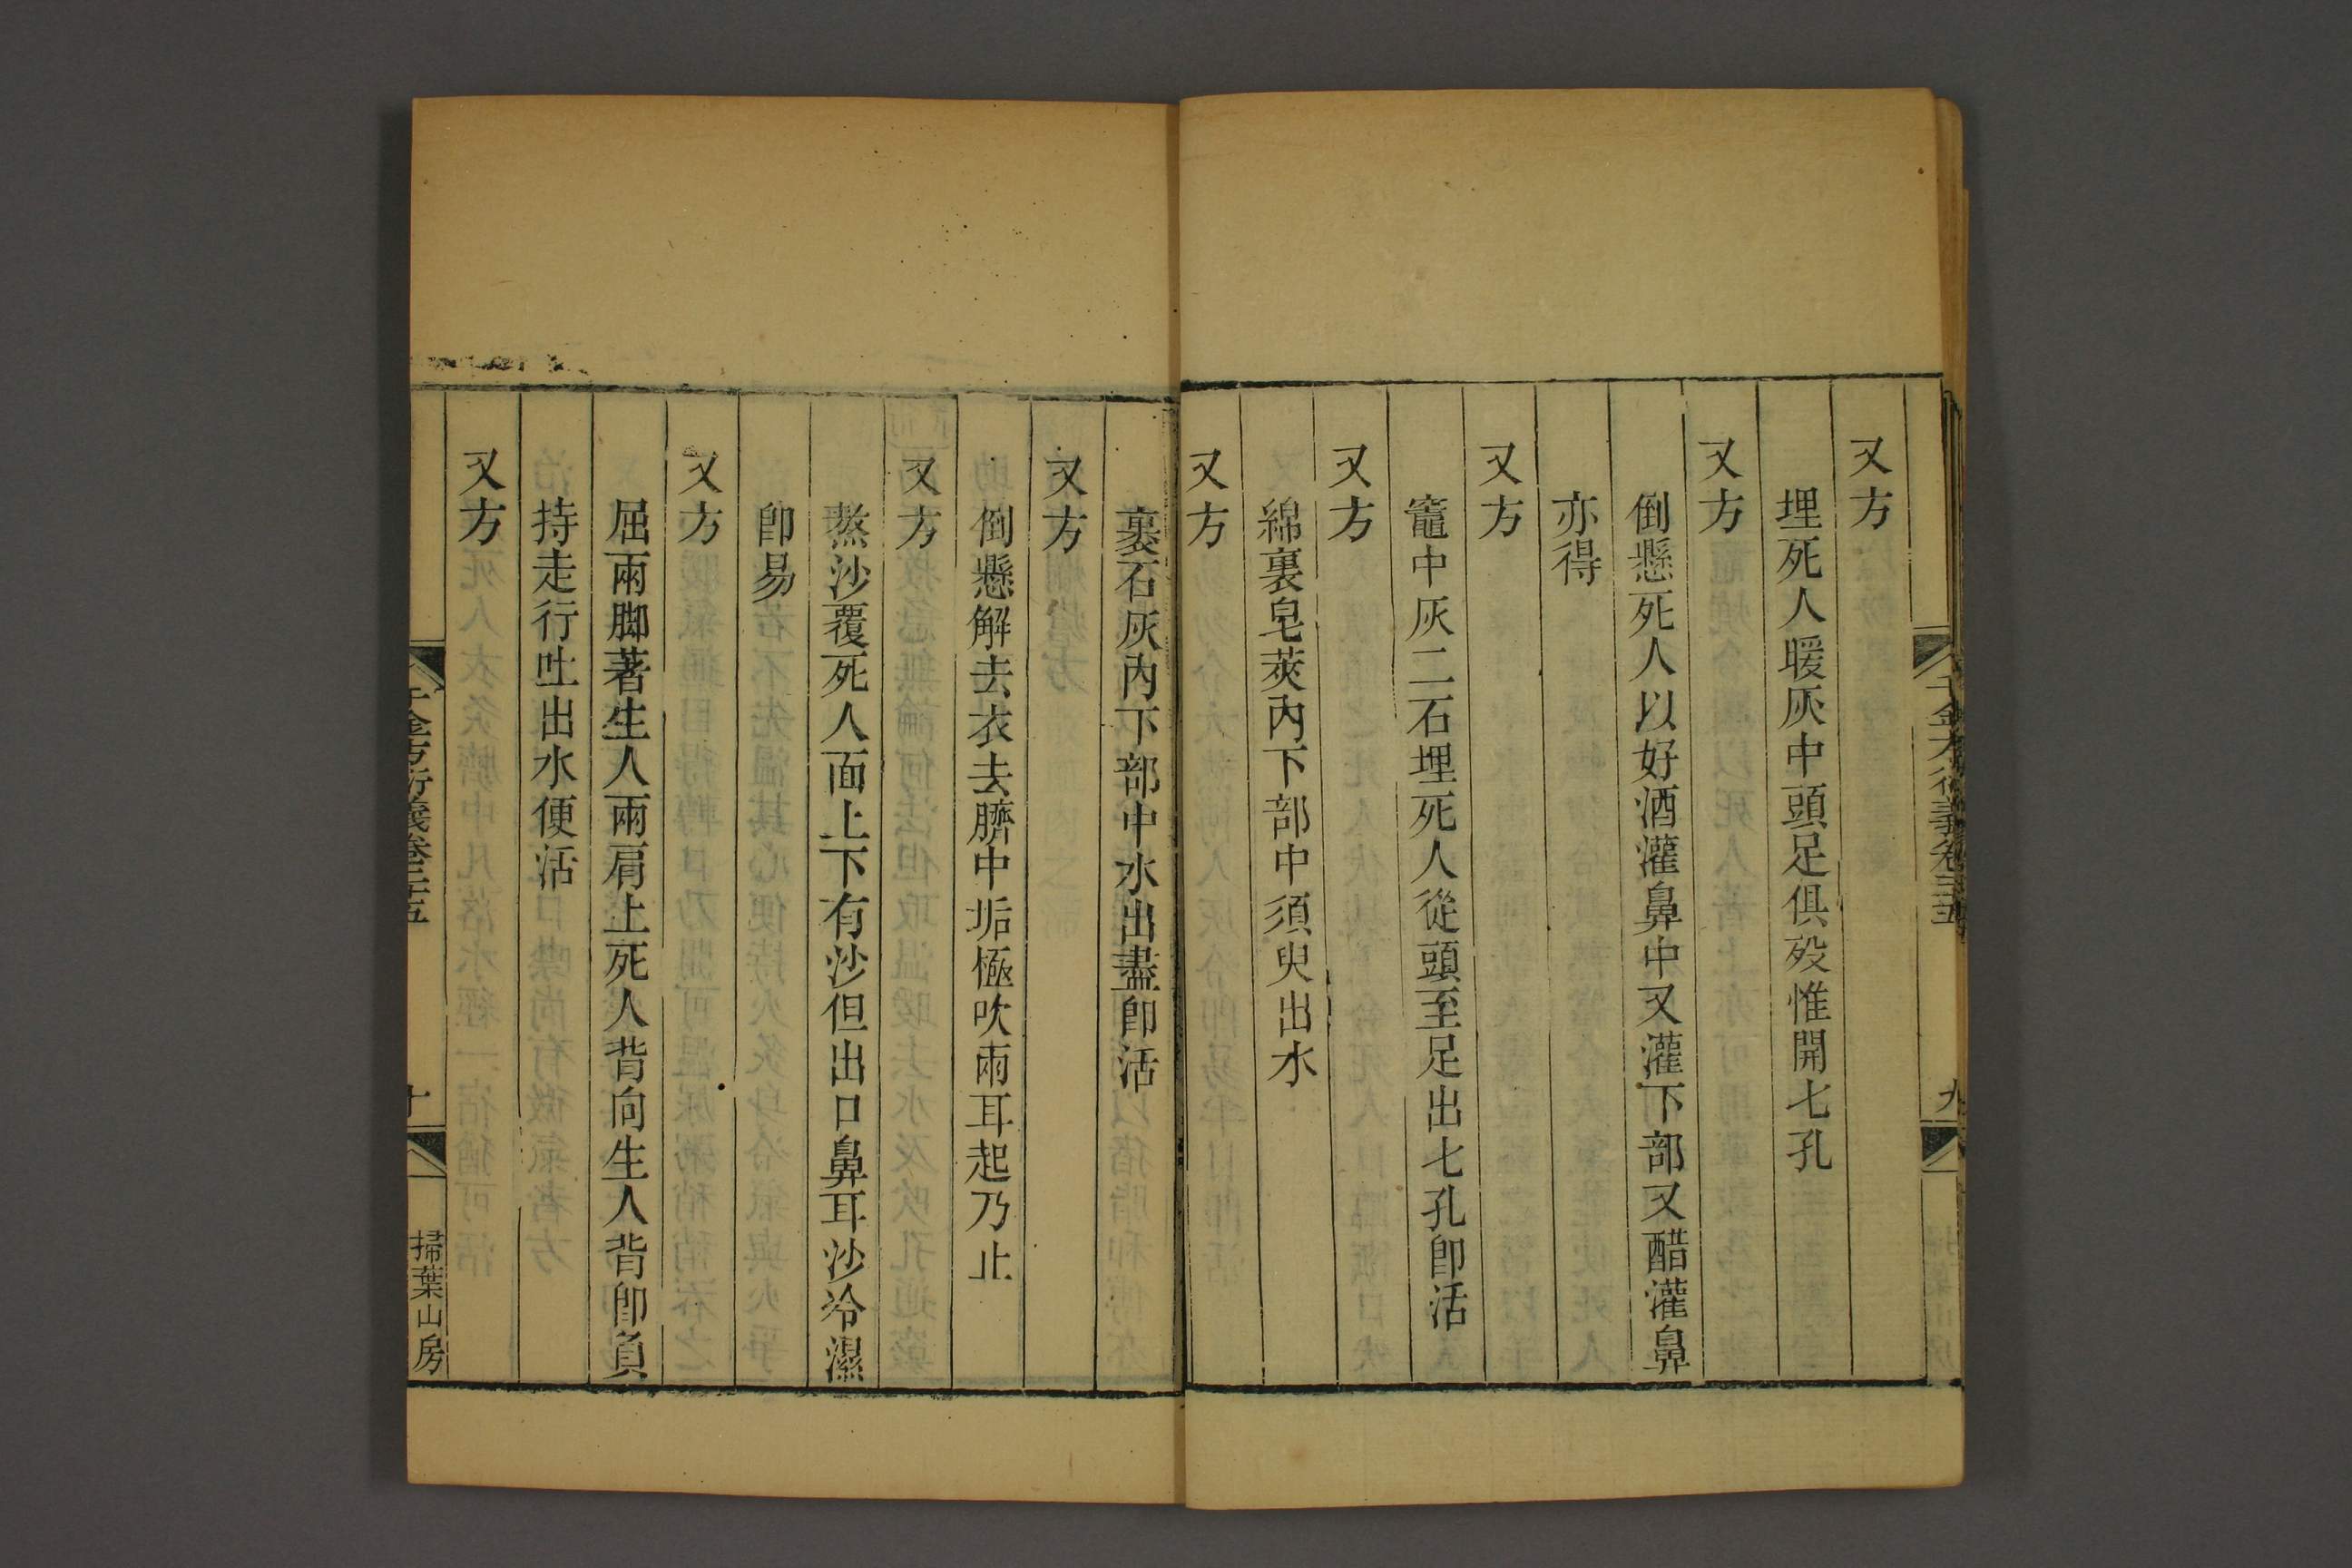 又方
埋死人暖灰中頭足俱歿惟開七孔
又方
倒懸死人以好酒灌鼻中又灌下部又醋灌鼻
亦得
又方
竈中灰二石埋死人從頭至足出七孔卽活
又方
綿裏皂莢內下部中須臾出水
又方
裹石灰內下部中水出盡卽活
又方
倒懸解去衣去臍中垢極吹兩耳起乃止
又方
熬沙覆死人面上下有沙但出口鼻耳沙冷濕
卽易
又方
屈兩脚著生人兩肩上死人背向生人背卽負
持走行吐出水便活
又方
千金方衍義卷二十五
九
千金方衍義卷二十五
十
掃葉山房